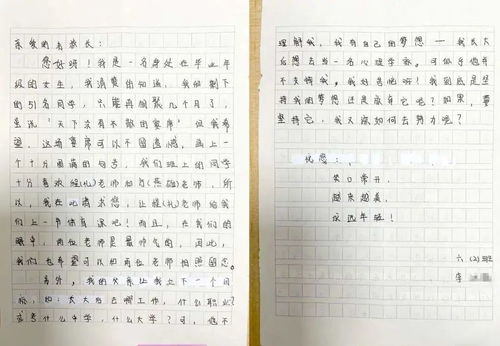 亲爱的名校长：
您好呀！我是一名身处在毕业年
级的女生，我清楚的知道，我们剩下
的51名同学，只能再相聚几个月了，
虽说"天下没有不散的宴席"但我希
望，这场宴席可以不留遗憾，画上一
个十分圆满的句号，我们班上的同学
十分喜欢(礼)老师和肖(燕雄)老师，所
以，我在此请求您，让(礼)老师给我
们上一节体育课吧！而且，在我们的
眼中，两位老师是最帅气的，因此，
我们也希望可以和两位老师拍照留念。
另外，我的父亲让我立下一个目
标，如：长大后去哪工作，什么职业？
或考什么中学，什么大学？可，他不
理解我，我有自己的梦想——我长大
后想去当一名心理学家。可似乎他并
不支持我。我好苦恼呀！我到底是坚
持我的梦想还是放弃它呢？如果，要
坚持它，我又应如何去努力呢？
祝您：
笑口常开，
越来越美，
永远年轻！
六（2）班
李